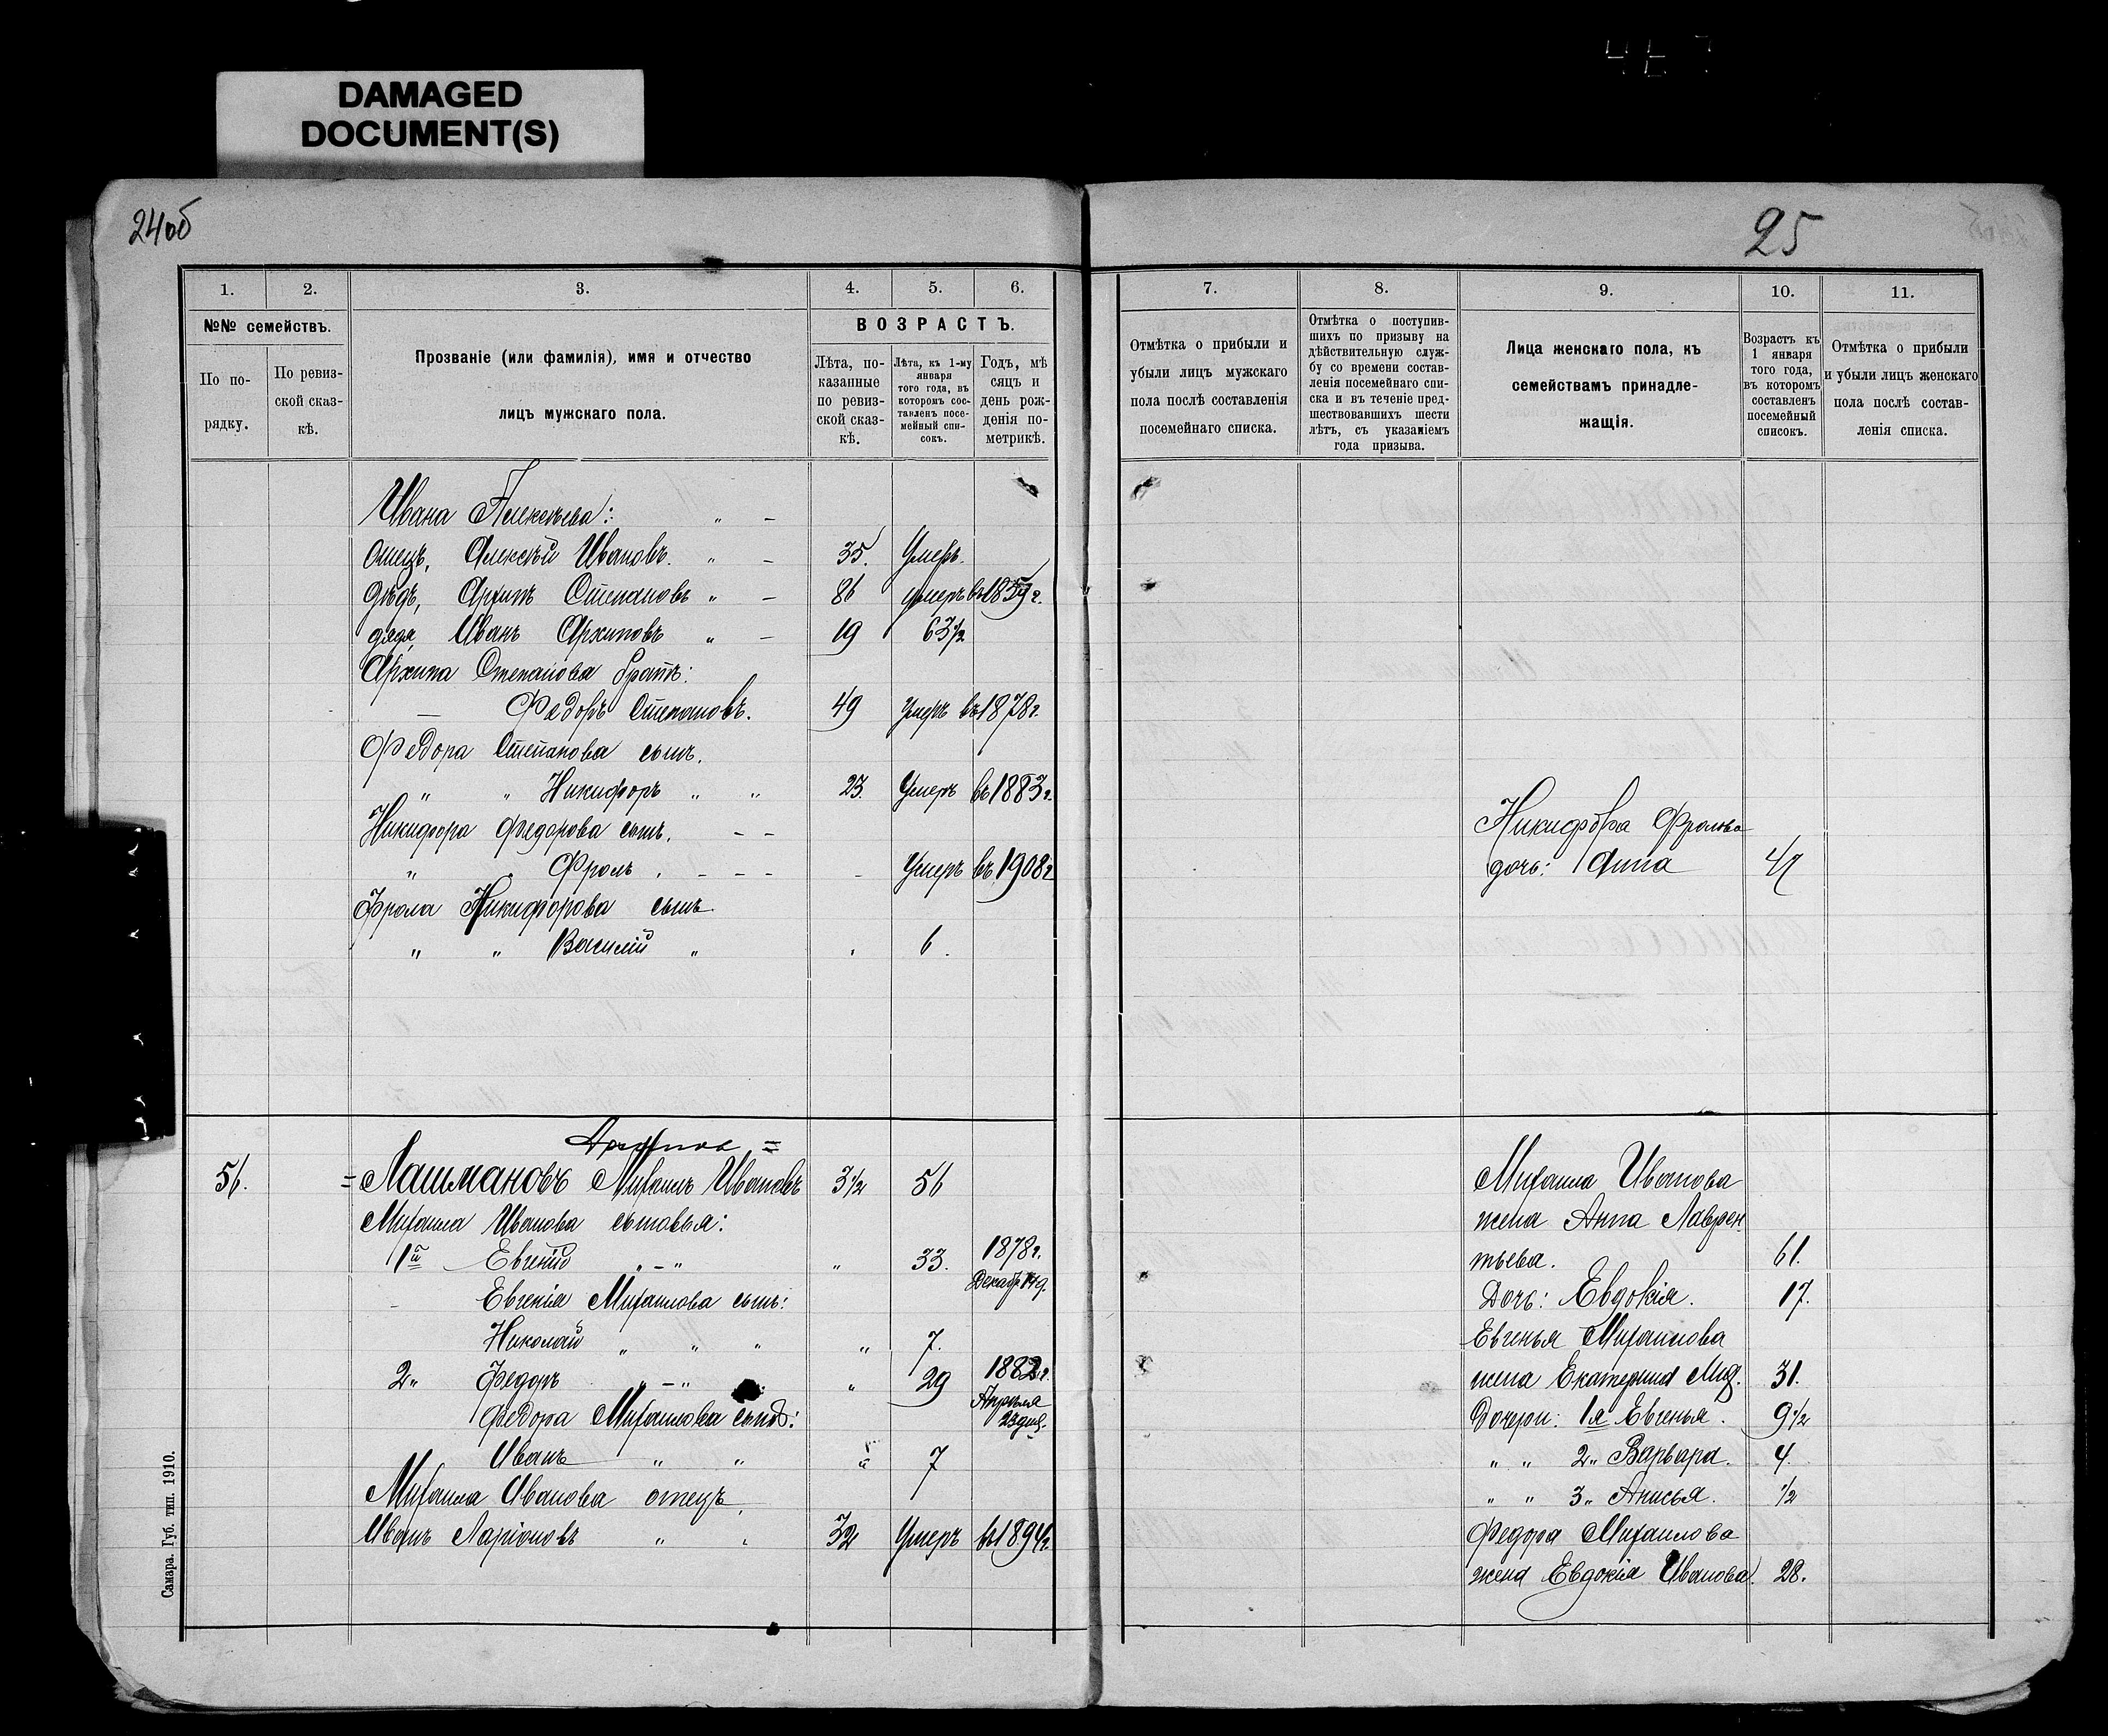 DAMAGED
DOCUMENT(S)
24об
1.
2.
3.
4.
5.
6.
№№ семействъ.
ВОЗРАСТЪ.
По по-
рядку.
По ревиз-
ской сказ-
кѣ.
Прозваніе (или фамилія), имя и отчество
лицъ мужскаго пола.
Лѣта, по-
казанные
по ревиз-
ской сказ-
кѣ.
Лѣта, къ 1-му
января
того года, въ
которомъ сос-
тавленъ посе-
мейный спи-
сокъ.
Годъ, мѣ
сяцъ и
день рож-
денія по-
метрикѣ.
Ивана Алексѣева: " -
отецъ, Алексѣй Ивановъ. " - 35. Умеръ.
дѣдъ, Архипъ Степановъ " - 86 умеръ въ 1859 г.
дядя, Иванъ Архиповъ " - 19 63½
Архипа Степанова братъ:
— Федоръ Степановъ. 49 умеръ въ 1878 г.
Федора Степанова сынъ.
" " Никифоръ " " 23. Умеръ въ 1883 г.
Никифора Федорова сынъ. - -
" Фролъ . - - - - Умеръ въ 1908 г.
Фрола Никифорова сынъ.
" " Василій " . 6.
=
56. = Лашмановъ Михаилъ Ивановъ 3½ 56
Михаила Иванова сыновья:
1й Евгеній " - " " 33. 1878 г.
Декабр. 19 д.
Евгенія Михаилова сынъ:
Николай " " " " 7.
2" Федоръ " - " " 29 1882 г.
Апрѣля
23 дня.
Федора Михаилова сынъ:
Иванъ " " " 7
Михаила Иванова отецъ,
Иванъ Ларіоновъ " " 32 Умеръ въ 1894 г.
Самара. Губ. тип. 1910.
25
7.
8.
9.
10.
11.
Отмѣтка о прибыли и
убыли лицъ мужскаго
пола послѣ составленія
посемейнаго списка.
Отмѣтка о поступив-
шихъ по призыву на
дѣйствительную служ-
бу со времени состав-
ленія посемейнаго спи-
ска и въ теченіе пред-
шествовавшихъ шести
лѣтъ, съ указаніемъ
года призыва.
Лица женскаго пола, къ
семействамъ принадле-
жащія.
Возрастъ къ
1 января
того года,
въ которомъ
составленъ
посемейный
списокъ.
Отмѣтка о прибыли
и убыли лицъ женскаго
пола послѣ состав-
ленія списка.
Никифора Фролова
дочь: Анна
Михаила Иванова
жена Анна Лаврен
тьева. 61.
Дочь: Евдокія. 17.
Евгенья Михаилова
жена Екатерина Мих. 31.
Дочери: 1я Евгенья. 9½
" " 2" Варвара. 4.
" " 3" Анисья. ½
Федора Михаилова
жена Евдокія Иванова. 28.